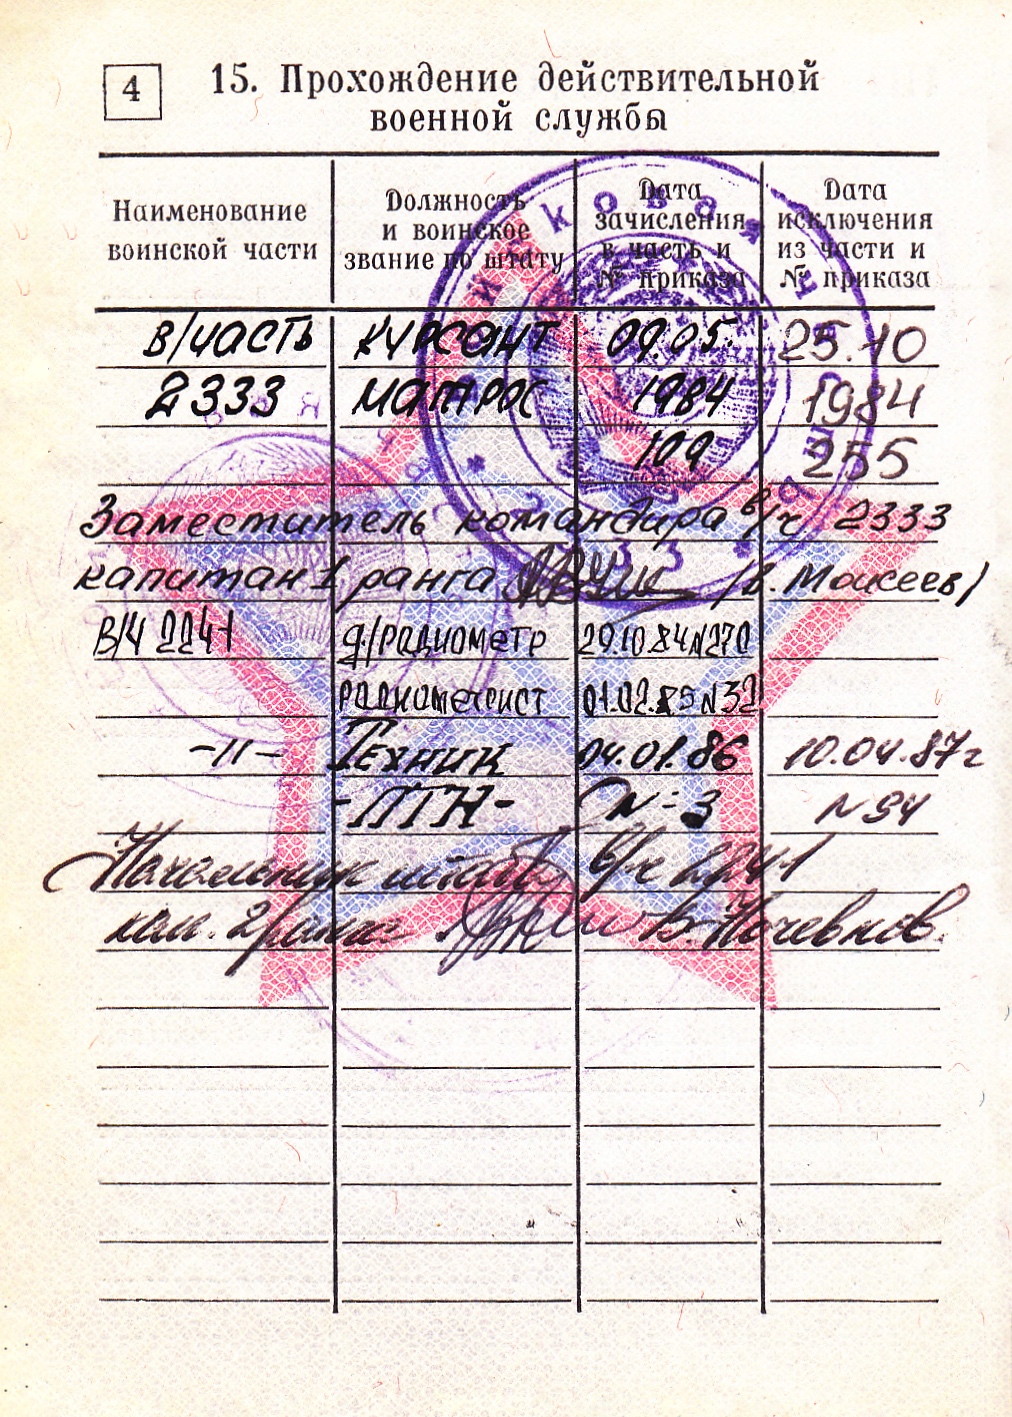 4
15. Прохождение действительной
военной службы
Наименование воинской части
Должность и воинское звание по штату
Дата зачисления в часть и № приказа
Дата исключения из части и № приказа
в/часть курсант 09.05. 25.10
2333 матрос 1984 1984
109 255
Заместитель командира в/ч 2333
капитан 1 ранга /В. Моисеев/
В/Ч 2241 радиометр 29.10.84 N270
радиометрист 01.02.85 N32
-"- Техник 04.01.86 10.04.87г
N=3 N 94
Начальник штаба в/ч 2241
кап. 2 ранга В.
войсковая часть
* 2333 *